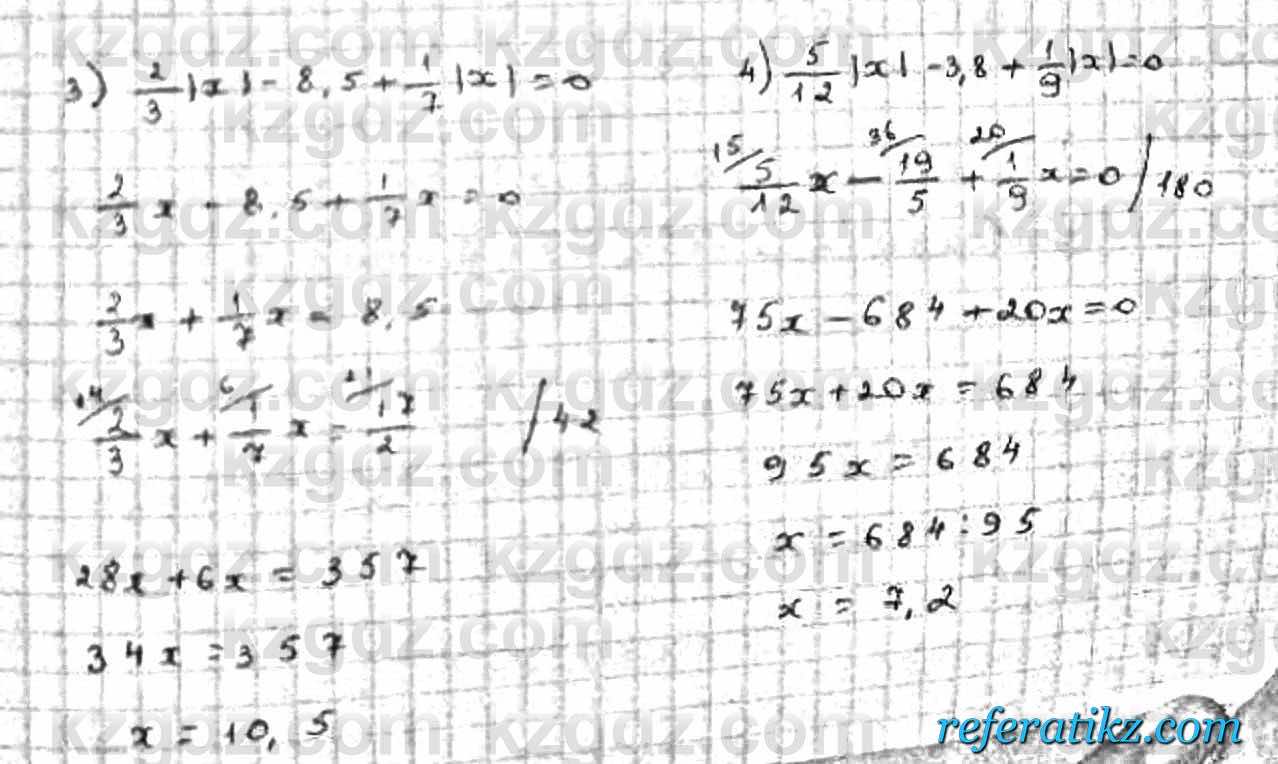 3) 2/3 |x| - 8,5 + 1/7 |x| = 0
2/3 x - 8,5 + 1/7 x = 0
2/3 x + 1/7 x = 8,5
14/ 2/3 x + 6/ 1/7 x = 21/ 17/2 / 42
28x + 6x = 357
34x = 357
x = 10,5
4) 5/12 |x| - 3,8 + 1/9 |x| = 0
15/ 5/12 x - 36/ 19/5 + 20/ 1/9 x = 0 / 180
75x - 684 + 20x = 0
75x + 20x = 684
95x = 684
x = 684 : 95
x = 7,2
kzgdz.com
referatikz.com